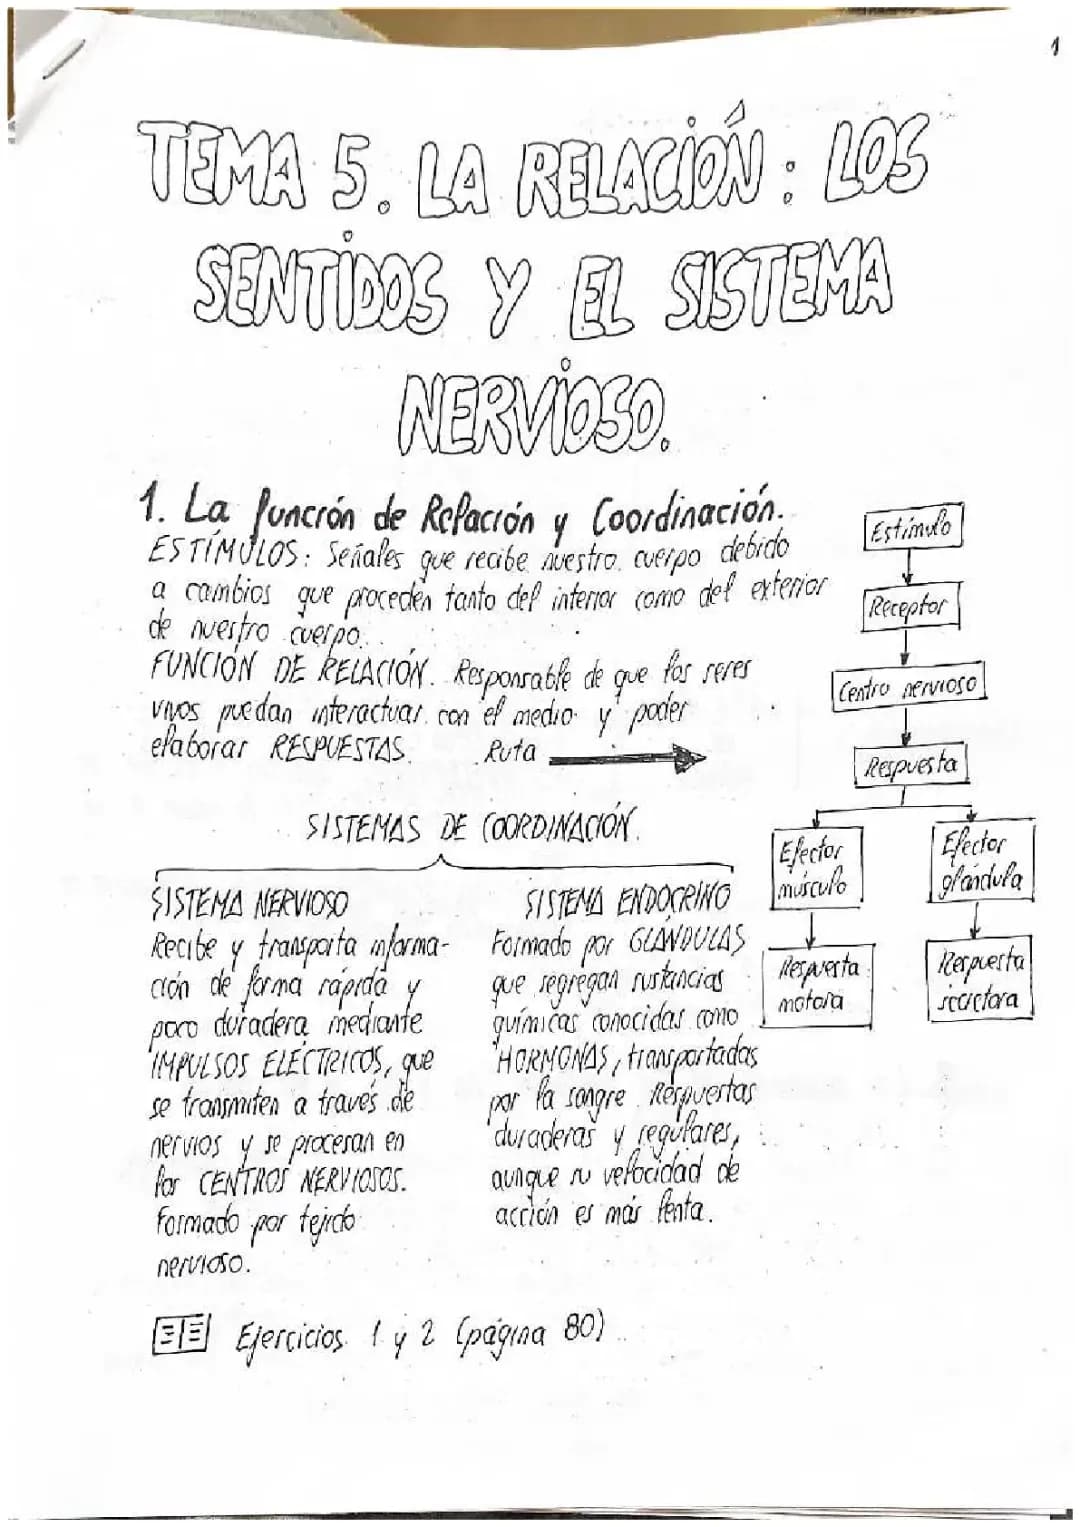 1
TEMA 5. LA RELACIÓN: LOS
SENTIDOS Y EL SISTEMA
NERVIOSO.
1. La función de Relación y Coordinación.
ESTÍMULOS: Señales que recibe nuestro cuerpo debido
a cambios que proceden tanto del interior como del exterior
de nuestro cuerpo.
FUNCIÓN DE RELACIÓN. Responsable de que los seres
vivos puedan interactuar con el medio y poder
elaborar RESPUESTAS. Ruta
Estímulo
Receptor
Centro nervioso
Respuesta
Efector
músculo
Efector
glándula
Respuesta
motora
Respuesta
secretora
SISTEMAS DE COORDINACIÓN.
SISTEMA NERVIOSO
Recibe y transporta informa-
ción de forma rápida y
poco duradera mediante
IMPULSOS ELÉCTRICOS, que
se transmiten a través de
nervios y se procesan en
los CENTROS NERVIOSOS.
Formado por tejido
nervioso.
SISTEMA ENDOCRINO
Formado por GLÁNDULAS
que segregan sustancias
químicas conocidas como
HORMONAS, transportadas
por la sangre. Respuestas
duraderas y regulares,
aunque su velocidad de
acción es más lenta.
Ejercicios 1 y 2 (página 80)